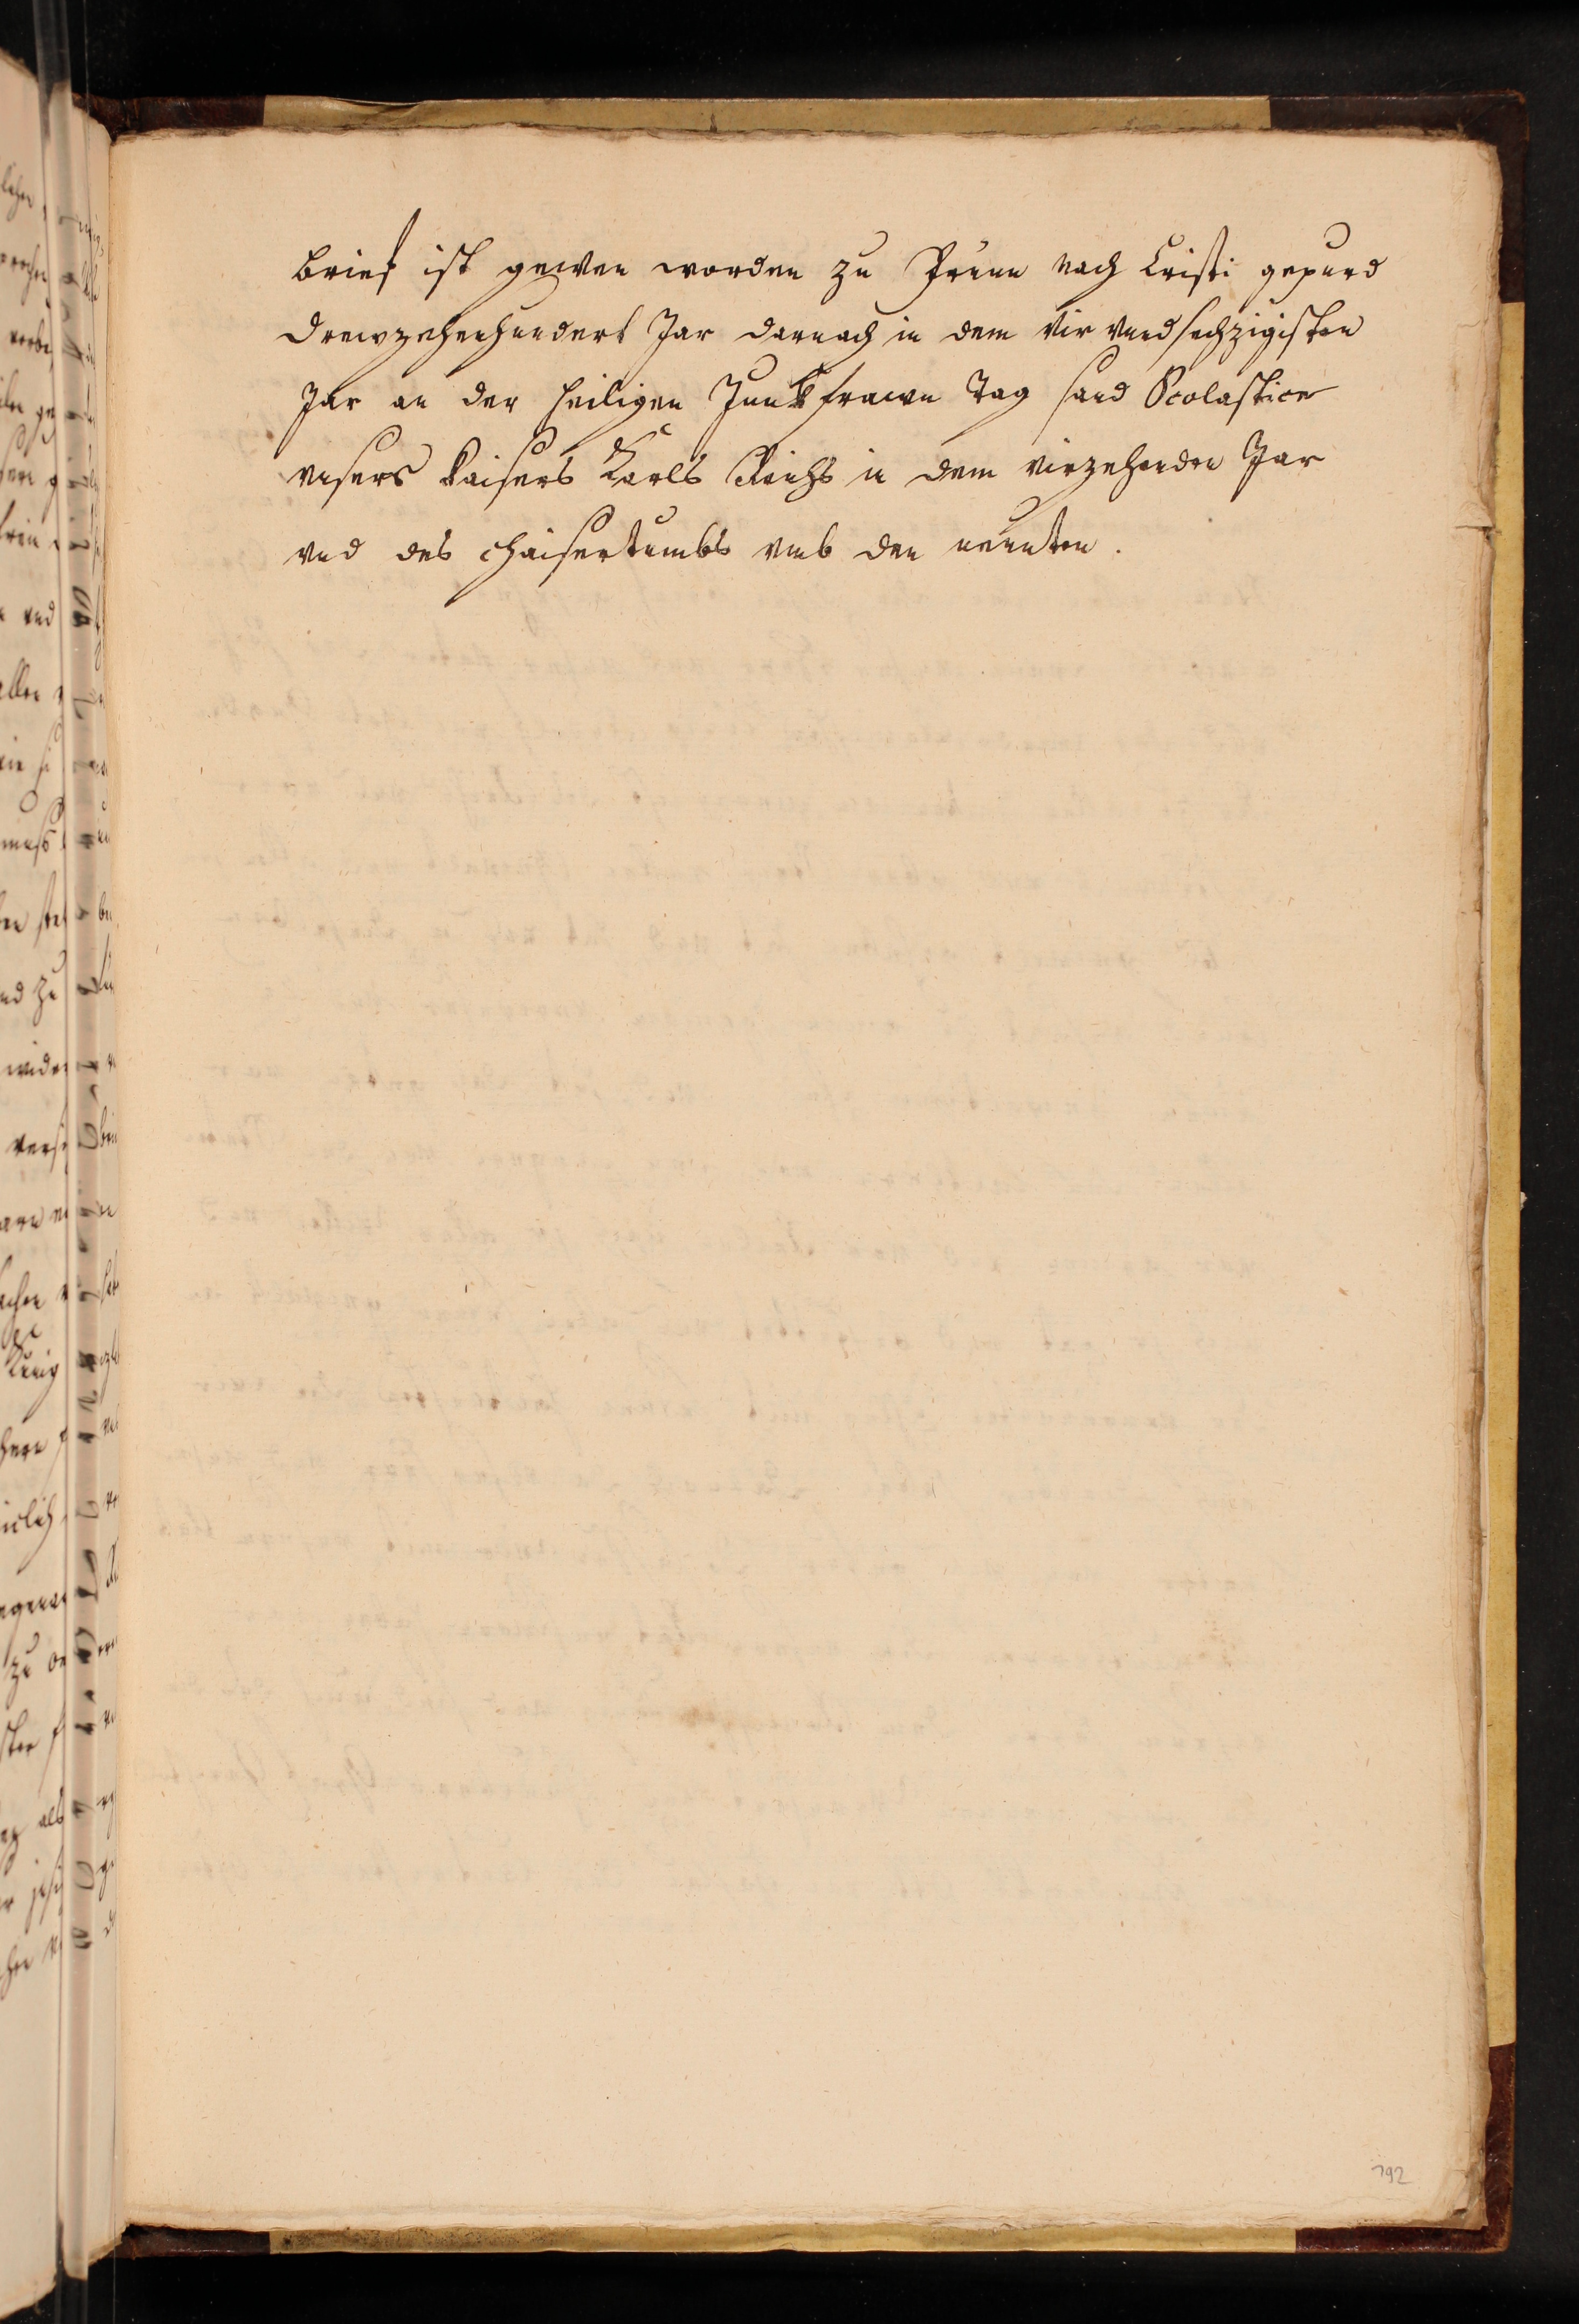 brief ist gewen worden zu Prünn nach Cristi gepurd
drewzehenhundert Jar darnach in dem vir vnd sechzigisten
Jar an der heiligen Junkfrawn Tag sand Scolastice
vnsers kaisers Karls Reichs in dem virzehenden Jar
vnd des chaisertumbs vmb den neunten.
792